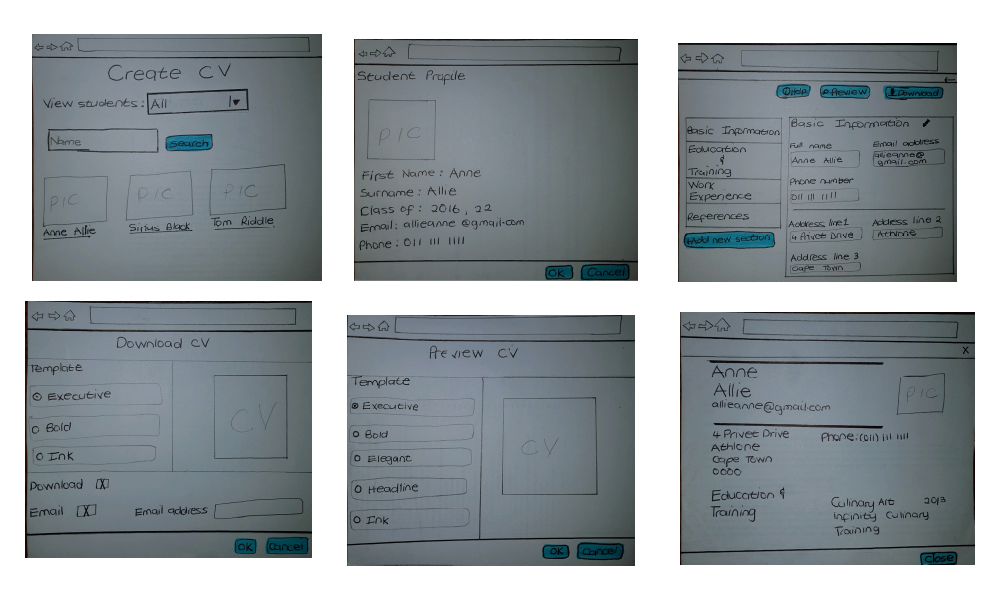 Create CV
View students: All
Name
Search
PIC
PIC
PIC
Anne Allie
Sirius Black
Tom Riddle
Student Profile
PIC
First Name: Anne
Surname: Allie
Class of: 2016, 22
Email: allieanne@gmail.com
Phone: 011 111 1111
OK
Cancel
Help
Preview
Download
Basic Information
Education
&
Training
Work
Experience
References
+Add new section
Basic Information
Full name
Email address
Anne Allie
allieanne@
gmail.com
Phone number
011 111 1111
Address line 1
Address line 2
4 Privet Drive
Athlone
Address line 3
Cape Town
Download CV
Template
Executive
Bold
Ink
CV
Download X
Email X
Email address
OK
Cancel
Preview CV
Template
Executive
Bold
Elegant
Headline
Ink
CV
OK
Cancel
X
Anne
Allie
allieanne@gmail.com
PIC
4 Privet Drive
Athlone
Cape Town
0000
Phone: (011) 111 1111
Education &
Training
Culinary Art 2013
Infinity Culinary
Training
Close